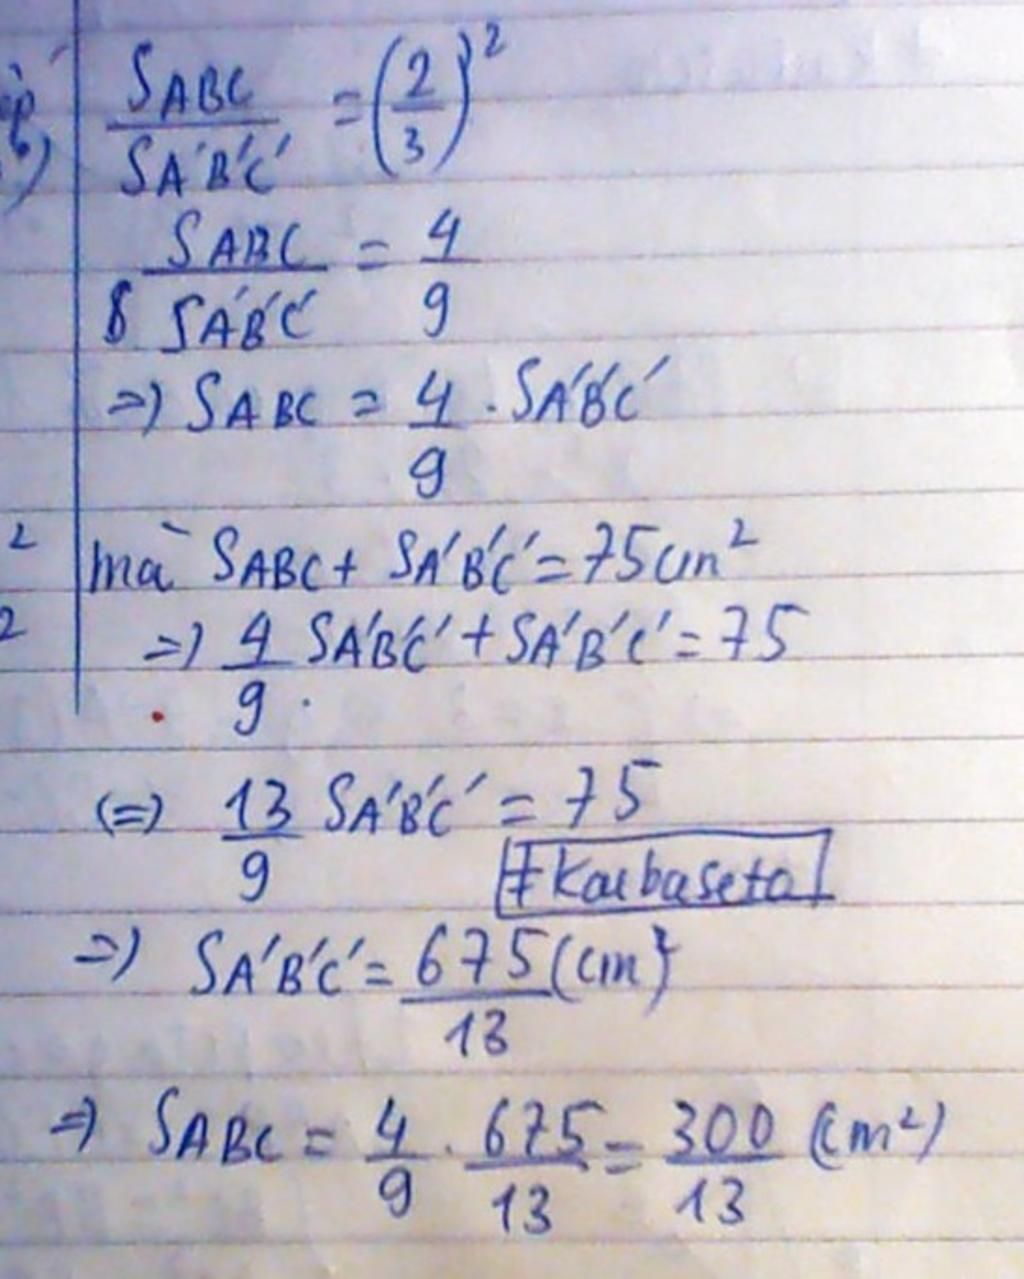 S_ABC / S_A'B'C' = (2/3)²
S_ABC / S_A'B'C' = 4/9
=> S_ABC = 4/9 . S_A'B'C'
mà S_ABC + S_A'B'C' = 75cm²
=> 4/9 S_A'B'C' + S_A'B'C' = 75
<=> 13/9 S_A'B'C' = 75
#Kaibaseto
=> S_A'B'C' = 675/13 (cm²)
=> S_ABC = 4/9 . 675/13 = 300/13 (cm²)